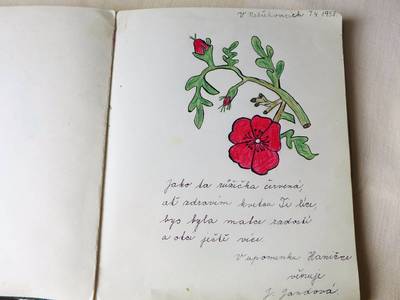 V 7.4.1951
Jako ta růžička červená,
ať zdravím kvetou Ti líce,
bys byla matce radostí
a otci ještě více.
V upomínku Haničce
věnuje
J. Jandová.